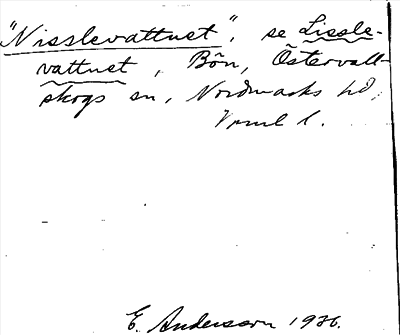 "Nisslevattnet", se Lissle-
vattnet, Bön, Östervall-
skogs sn, Nordmarks hd,
Vrml l.
E. Andersson 1926.